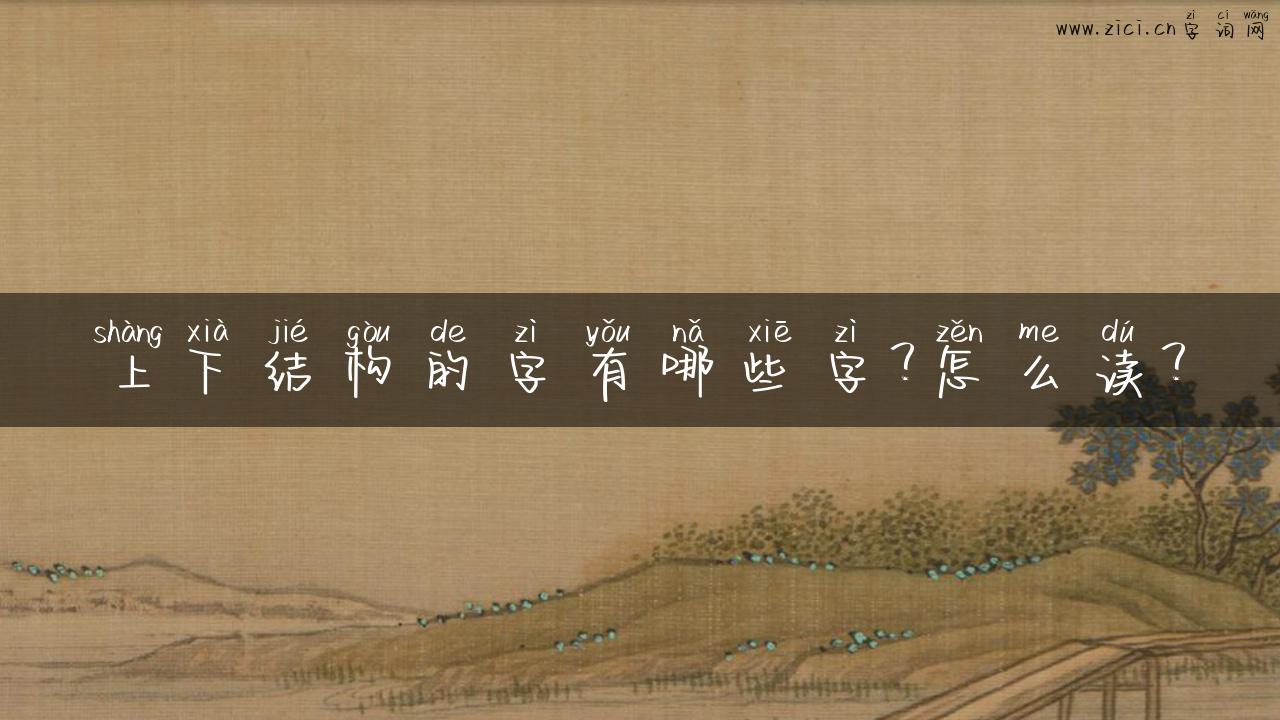 zì cí wǎng
www.zici.cn字词网
shàng xià jié gòu de zì yǒu nǎ xiē zì zěn me dú
上下结构的字有哪些字？怎么读？